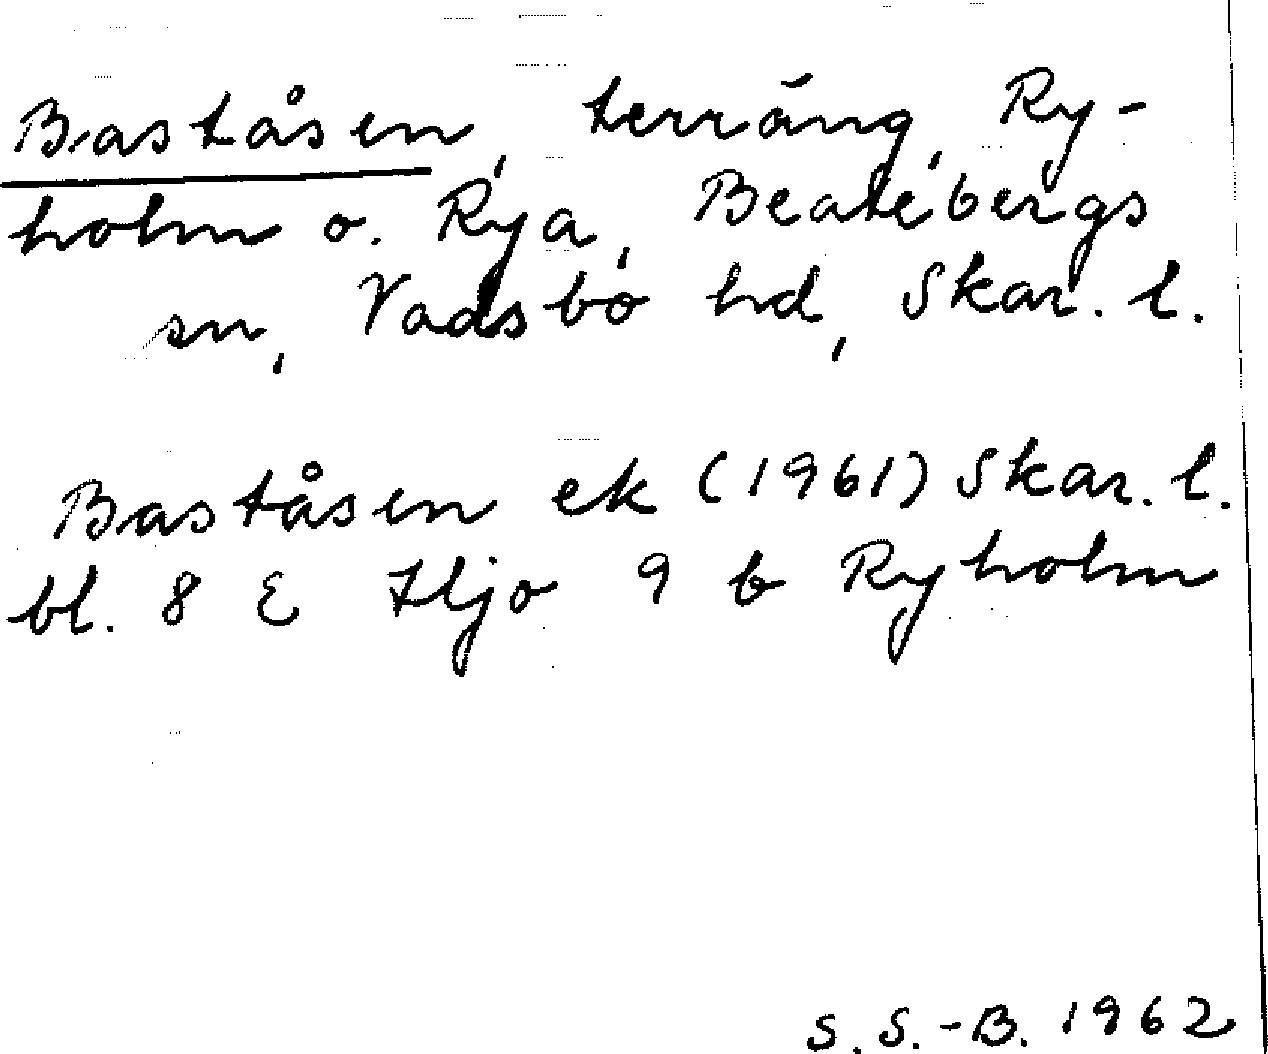 Baståsen, terräng, Ry-
holm o. Rya, Beatebergs
sn, Vadsbo hd, Skar. l.
Baståsen ek (1961) Skar. l.
bl. 8 E Hjo 9 b Ryholm
S. S.-B. 1962